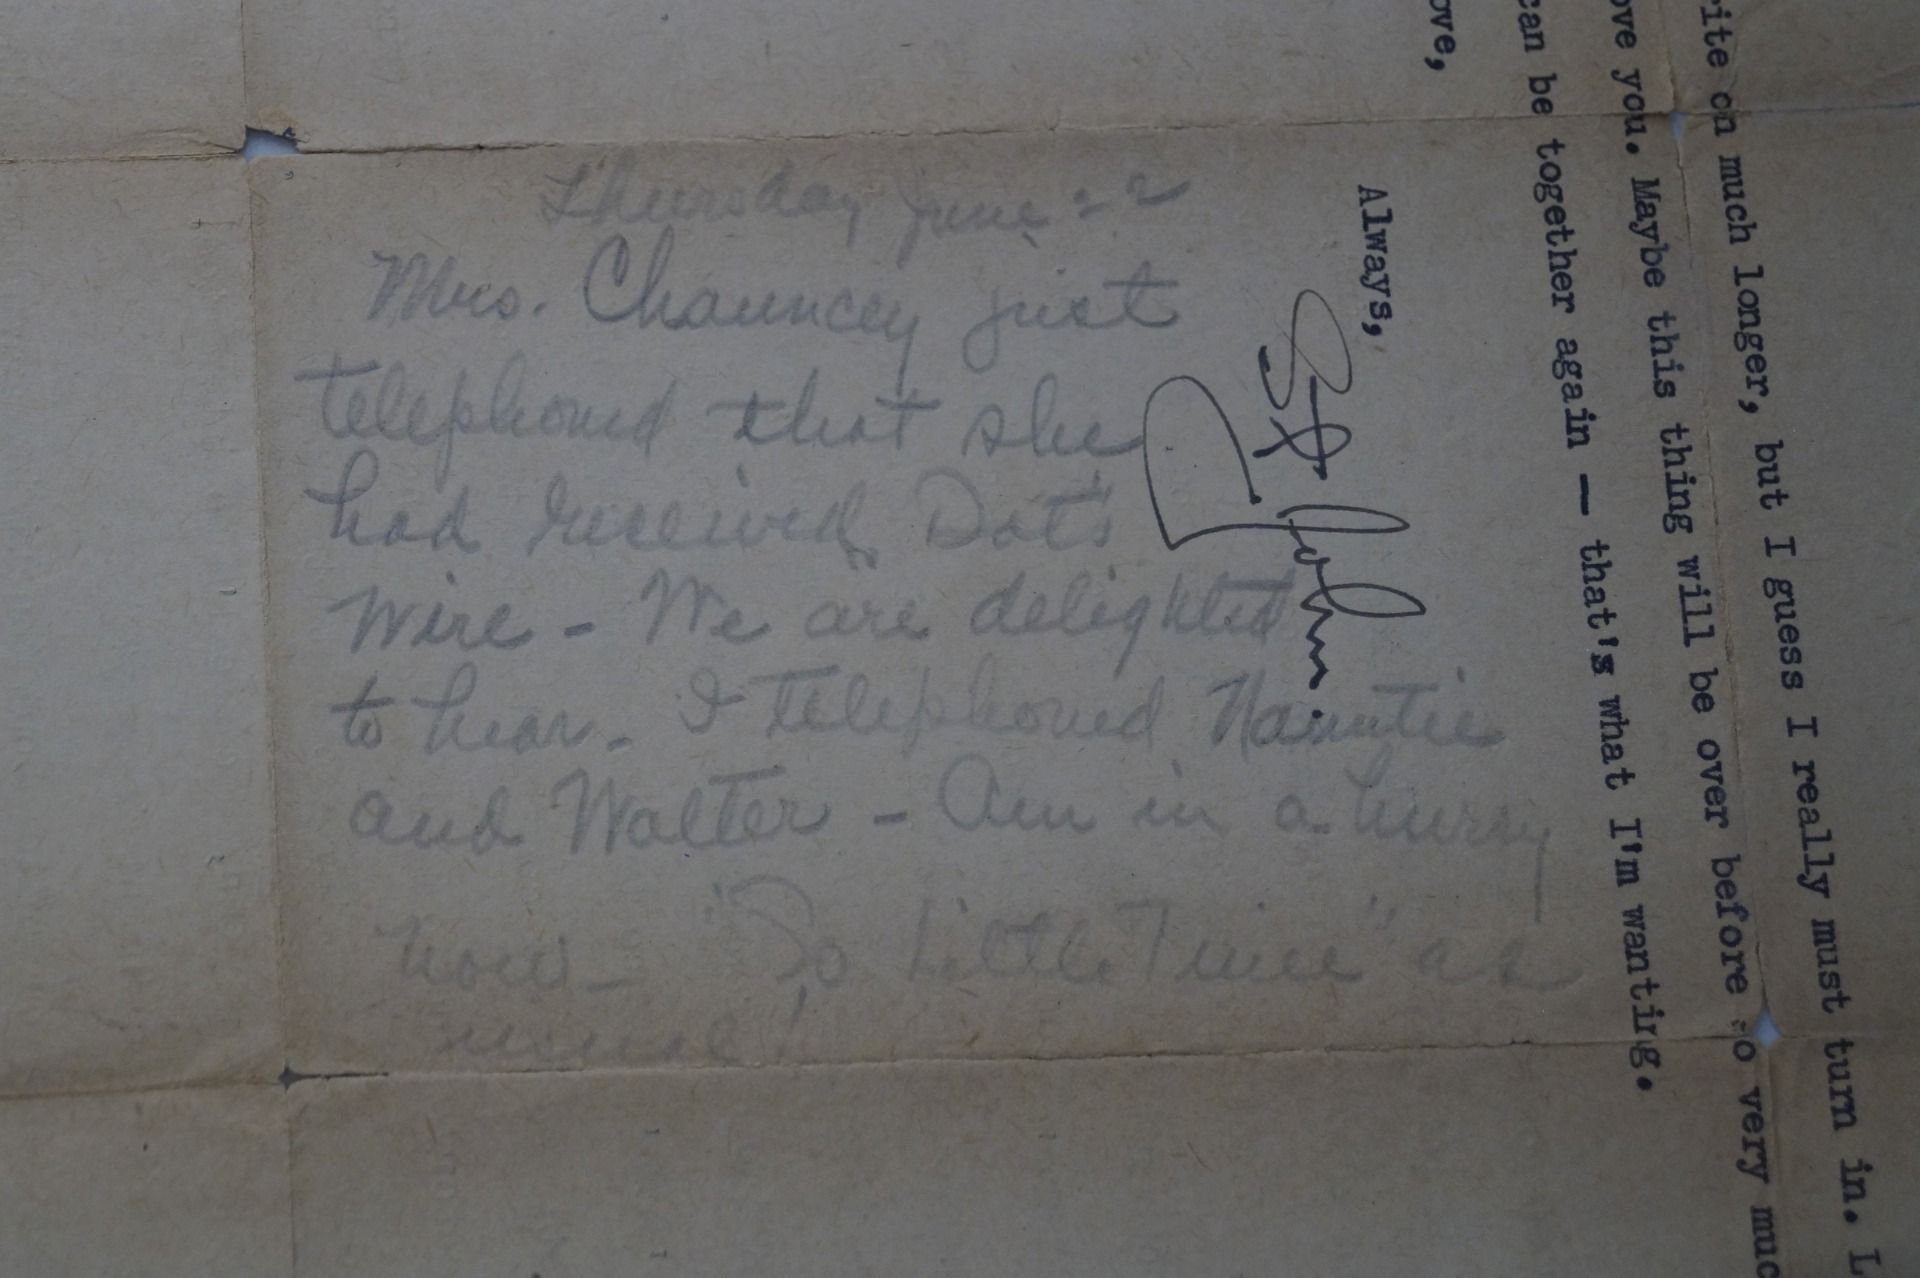 Thursday June 22
Mrs. Chauncey just
telephoned that she
had received Dot's
wire - We are delighted
to hear. I telephoned Nauntie
and Walter - Am in a hurry
now - "So Little Time" as
usual!
rite on much longer, but I guess I really must turn in. L
ove you. Maybe this thing will be over before so very muc
can be together again — that's what I'm wanting.
ove,
Always,
St John.